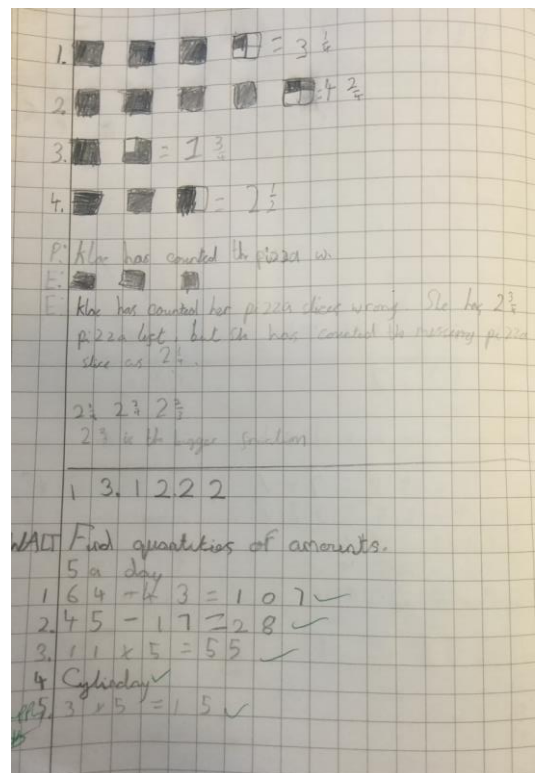 1. = 3 1/4
2. = 4 2/4
3. = 1 3/4
4. = 2 1/2
P: Kloe has counted the pizza w.
E:
E: Kloe has counted her pizza slices wrong. She has 2 3/4
pizza left but she has counted the missing pizza
slice as 2 1/4.
2 3/4 is the bigger fraction
1 3. 1 2.2 2
WALT Find quantities of amounts.
5 a day
1 64 + 43 = 107 ✓
2. 45 - 17 = 28 ✓
3. 11 x 5 = 55 ✓
4 Cylinday ✓
5. 3 x 5 = 15 ✓